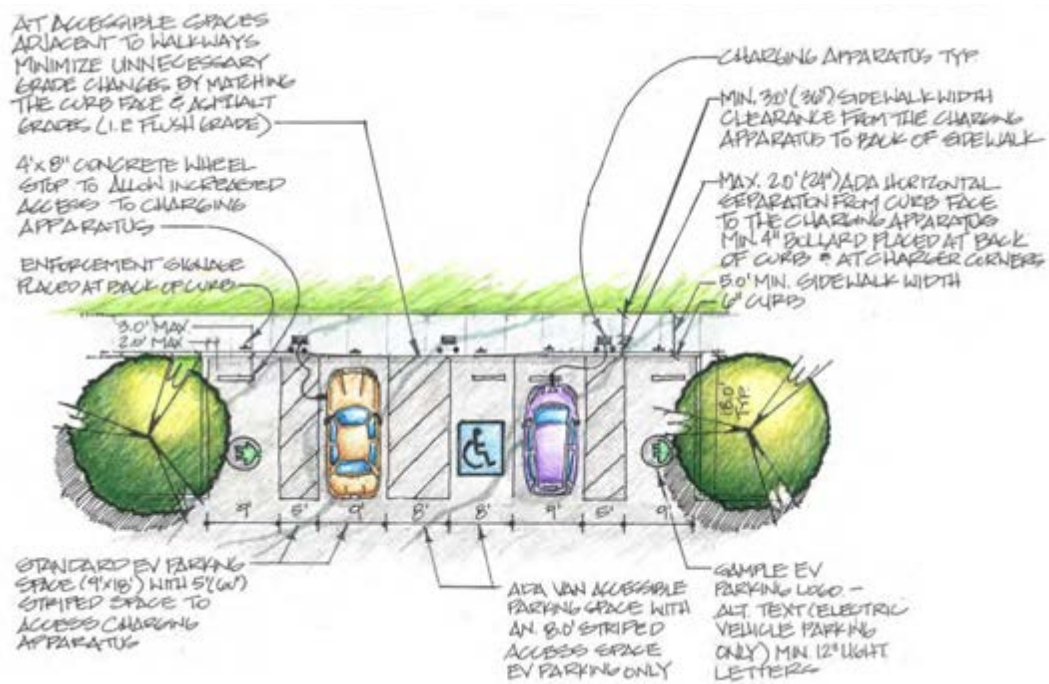 AT ACCESSIBLE SPACES
ADJACENT TO WALKWAYS
MINIMIZE UNNECESSARY
GRADE CHANGES BY MATCHING
THE CURB FACE & ASPHALT
GRADES (I.E. FLUSH GRADE)
4'x8" CONCRETE WHEEL
STOP TO ALLOW INCREASED
ACCESS TO CHARGING
APPARATUS
ENFORCEMENT SIGNAGE
PLACED AT BACK OF CURB
3.0' MAX
2.0' MAX
CHARGING APPARATUS TYP.
MIN. 3.0' (36") SIDEWALK WIDTH
CLEARANCE FROM THE CHARGING
APPARATUS TO BACK OF SIDEWALK
MAX. 2.0' (24") ADA HORIZONTAL
SEPARATION FROM CURB FACE
TO THE CHARGING APPARATUS
MIN 4" BOLLARD PLACED AT BACK
OF CURB & AT CHARGER CORNERS
5.0' MIN. SIDEWALK WIDTH
6" CURB
18.0'
TYP.
9' 5' 9' 8' 8' 9' 5' 9'
STANDARD EV PARKING
SPACE (9'x18') WITH 5' (60")
STRIPED SPACE TO
ACCESS CHARGING
APPARATUS
ADA VAN ACCESSIBLE
PARKING SPACE WITH
AN 8.0' STRIPED
ACCESS SPACE
EV PARKING ONLY
SAMPLE EV
PARKING LOGO -
ALT. TEXT (ELECTRIC
VEHICLE PARKING
ONLY) MIN 12" HIGHT
LETTERS